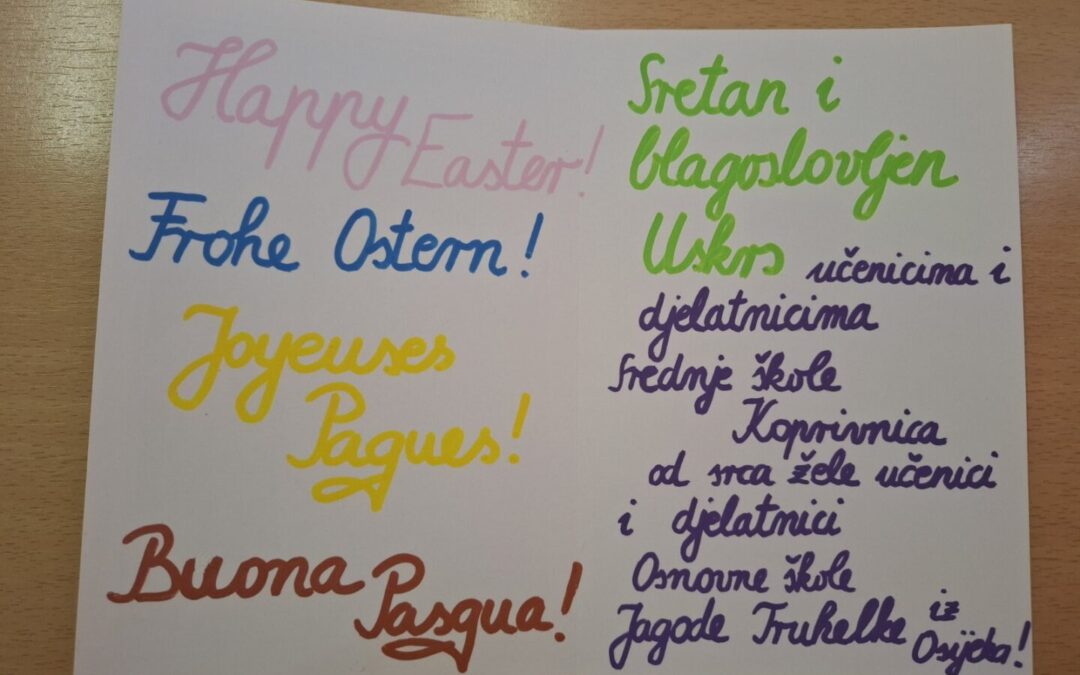 Happy
Easter!
Frohe Ostern!
Joyeuses
Paques!
Buona
Pasqua!
Sretan i
blagoslovljen
Uskrs učenicima i
djelatnicima
Srednje škole
Koprivnica
od srca žele učenici
i djelatnici
Osnovne škole
Jagode Truhelke iz
Osijeka!